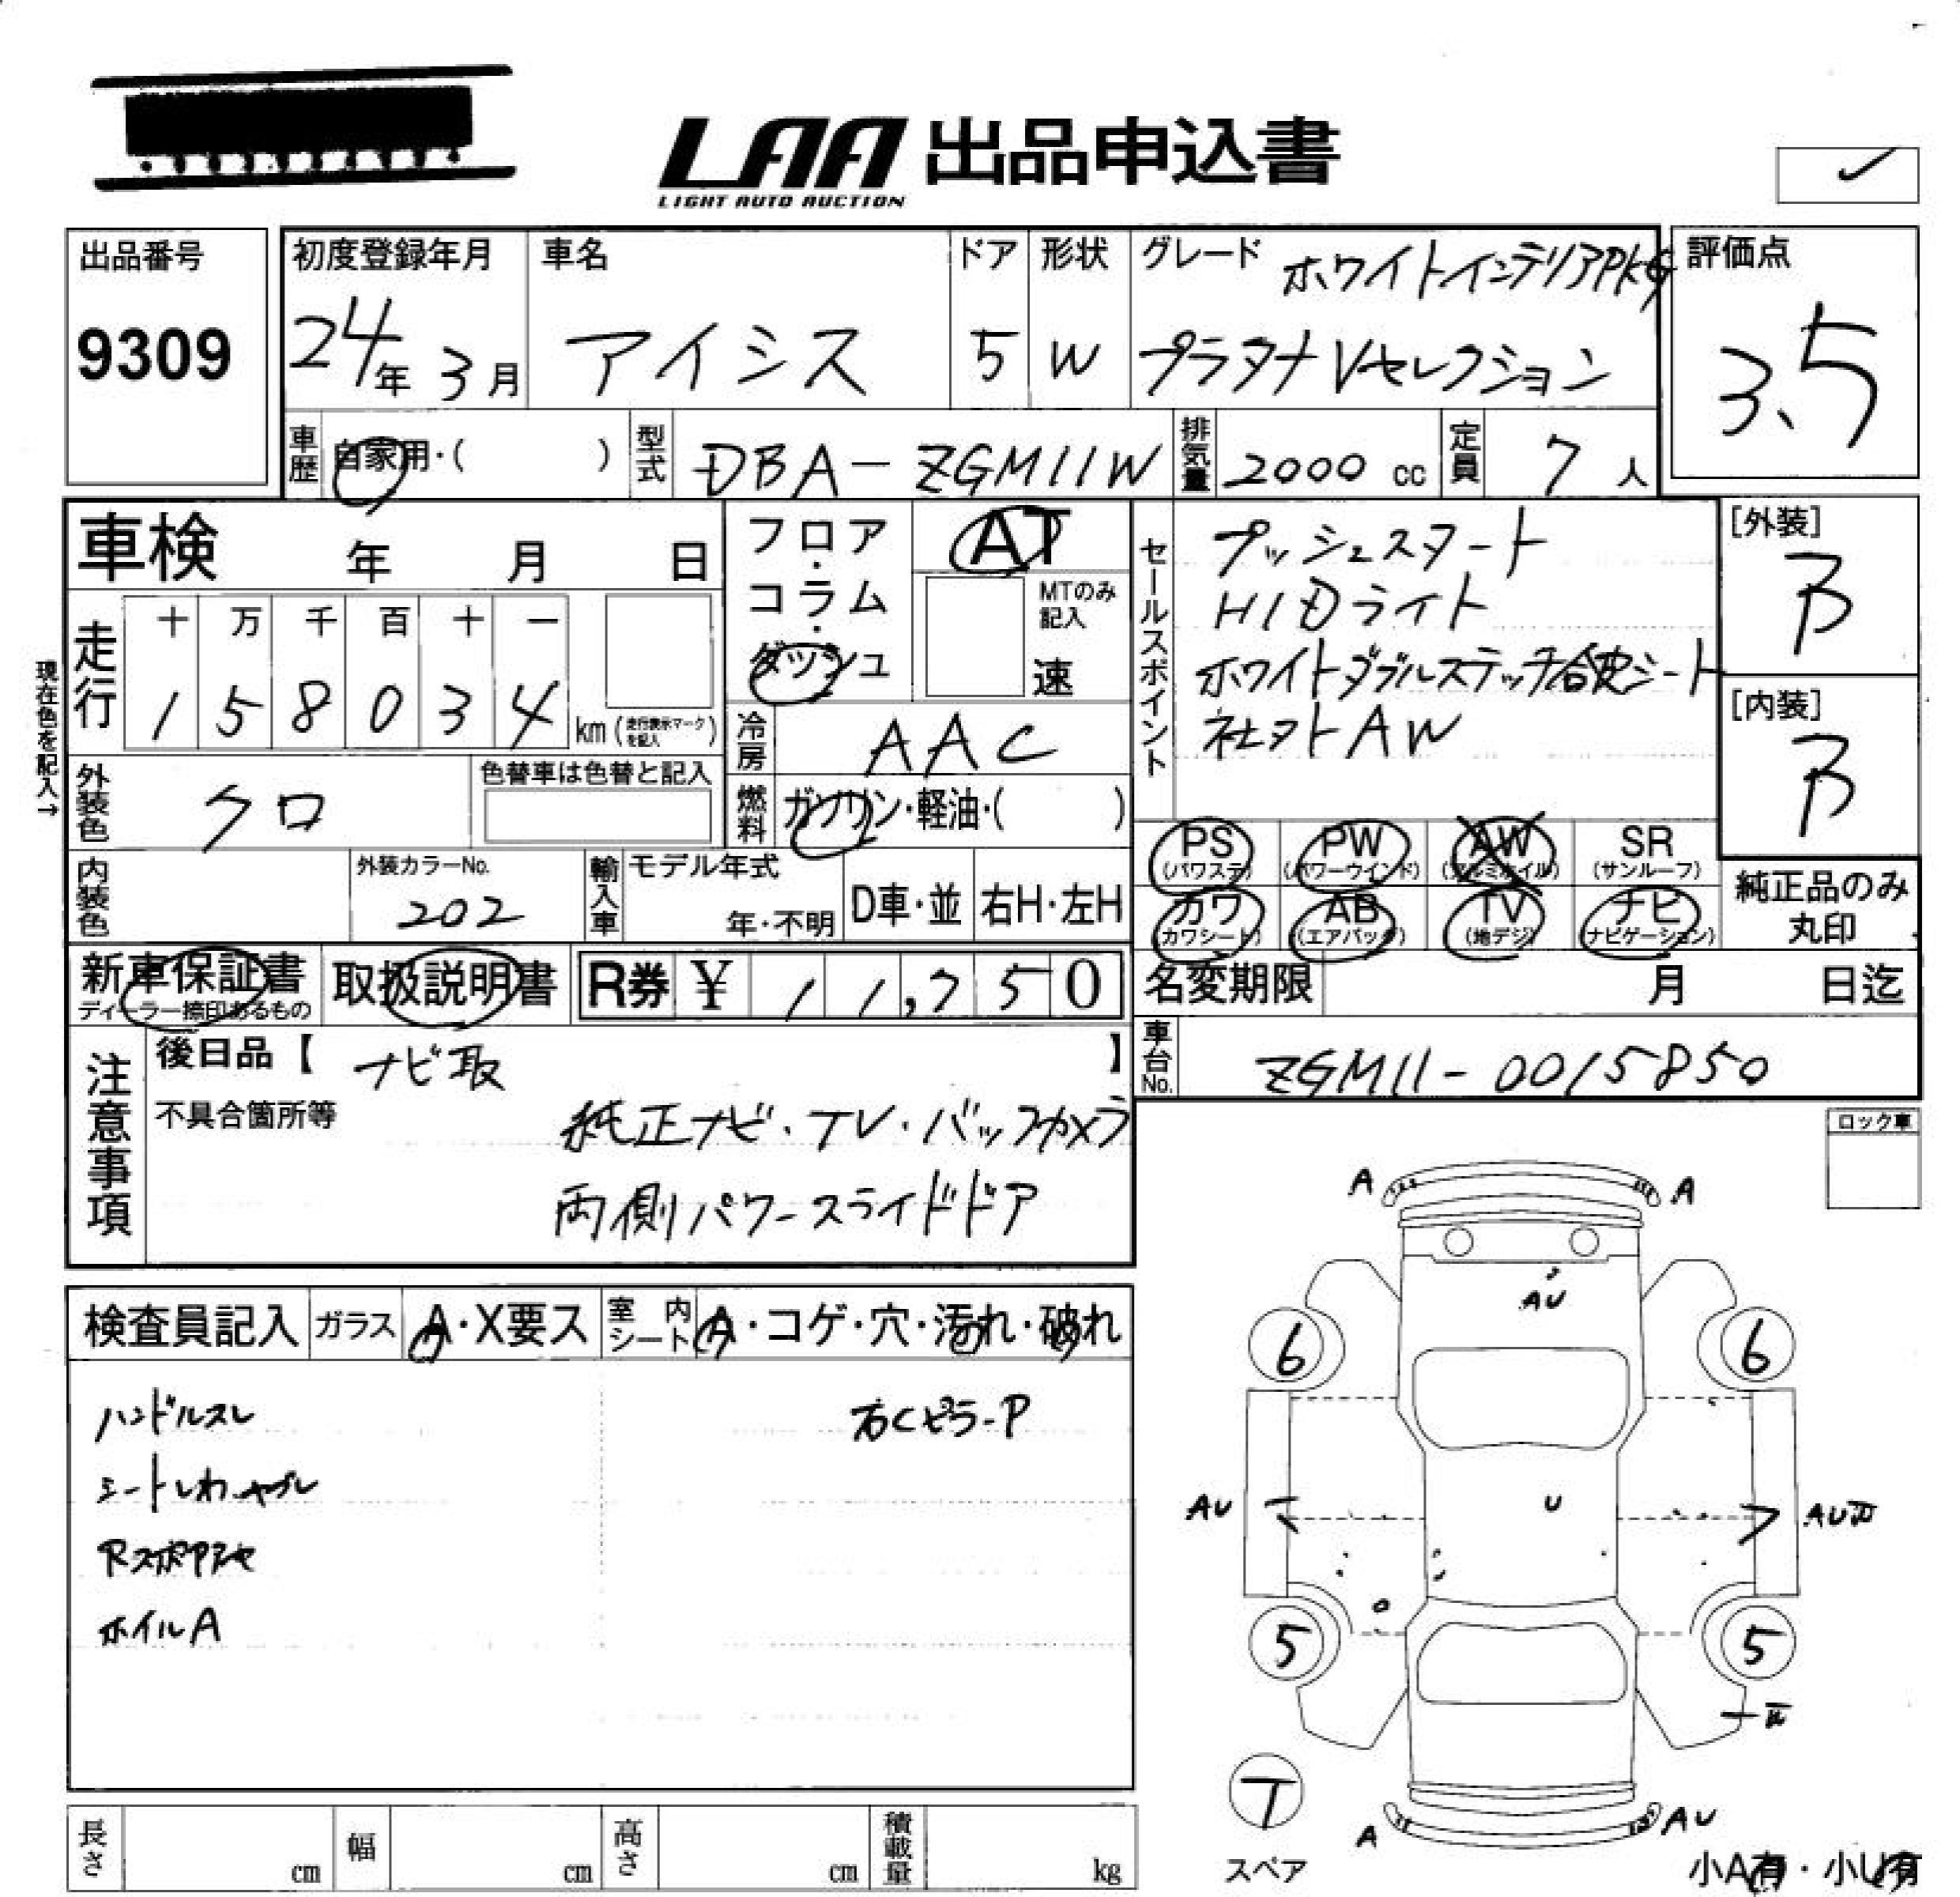 LAA 出品申込書
LIGHT AUTO AUCTION
出品番号
9309
初度登録年月
24年 3月
車名
アイシス
ドア
5
形状
W
グレード ホワイトインテリアPkG
プラタナVセレクション
評価点
3.5
車歴 自家用・( )
型式 DBA-ZGM11W
排気量 2000 cc
定員 7 人
車検 年 月 日
フロア・コラム・ダッシュ
AT
MTのみ記入
速
セールスポイント
プッシュスタート
HIDライト
ホワイトダブルステッチ合皮シート
社外AW
[外装]
B
[内装]
B
現在色を記入→
走行
十 万 千 百 十 一
1 5 8 0 3 4 km (走行表示マークを記入)
冷房 AAC
外装色 クロ
色替車は色替と記入
燃料 ガソリン・軽油・( )
内装色
外装カラーNo.
202
輸入車
モデル年式
年・不明
D車・並
右H・左H
PS (パワステ)
PW (パワーウインド)
AW (アルミホイル)
SR (サンルーフ)
カワ (カワシート)
AB (エアバッグ)
TV (地デジ)
ナビ (ナビゲーション)
純正品のみ丸印
新車保証書
ディーラー捺印あるもの
取扱説明書
R券 ¥ 11,750
名変期限 月 日迄
車台No. ZGM11-0015850
注意事項
後日品【 ナビ取 】
不具合箇所等
純正ナビ・TV・バックカメラ
両側パワースライドドア
ロック車
検査員記入
ガラス A・X要ス
室内シート A・コゲ・穴・汚れ・破れ
ハンドルスレ
右Cピラ-P
シートしわ・ヤブレ
ホイルA
A
A
AU
6
6
AU
U
AU
5
5
T
スペア
A
AU
小A有・小U有
長さ cm
幅 cm
高さ cm
積載量 kg